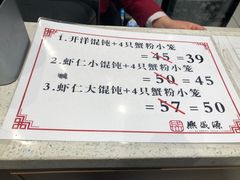 1.开洋馄饨+4只蟹粉小笼
=45=39
2.虾仁小馄饨+4只蟹粉小笼
=50=45
3.虾仁大馄饨+4只蟹粉小笼
=57=50
熙盛源